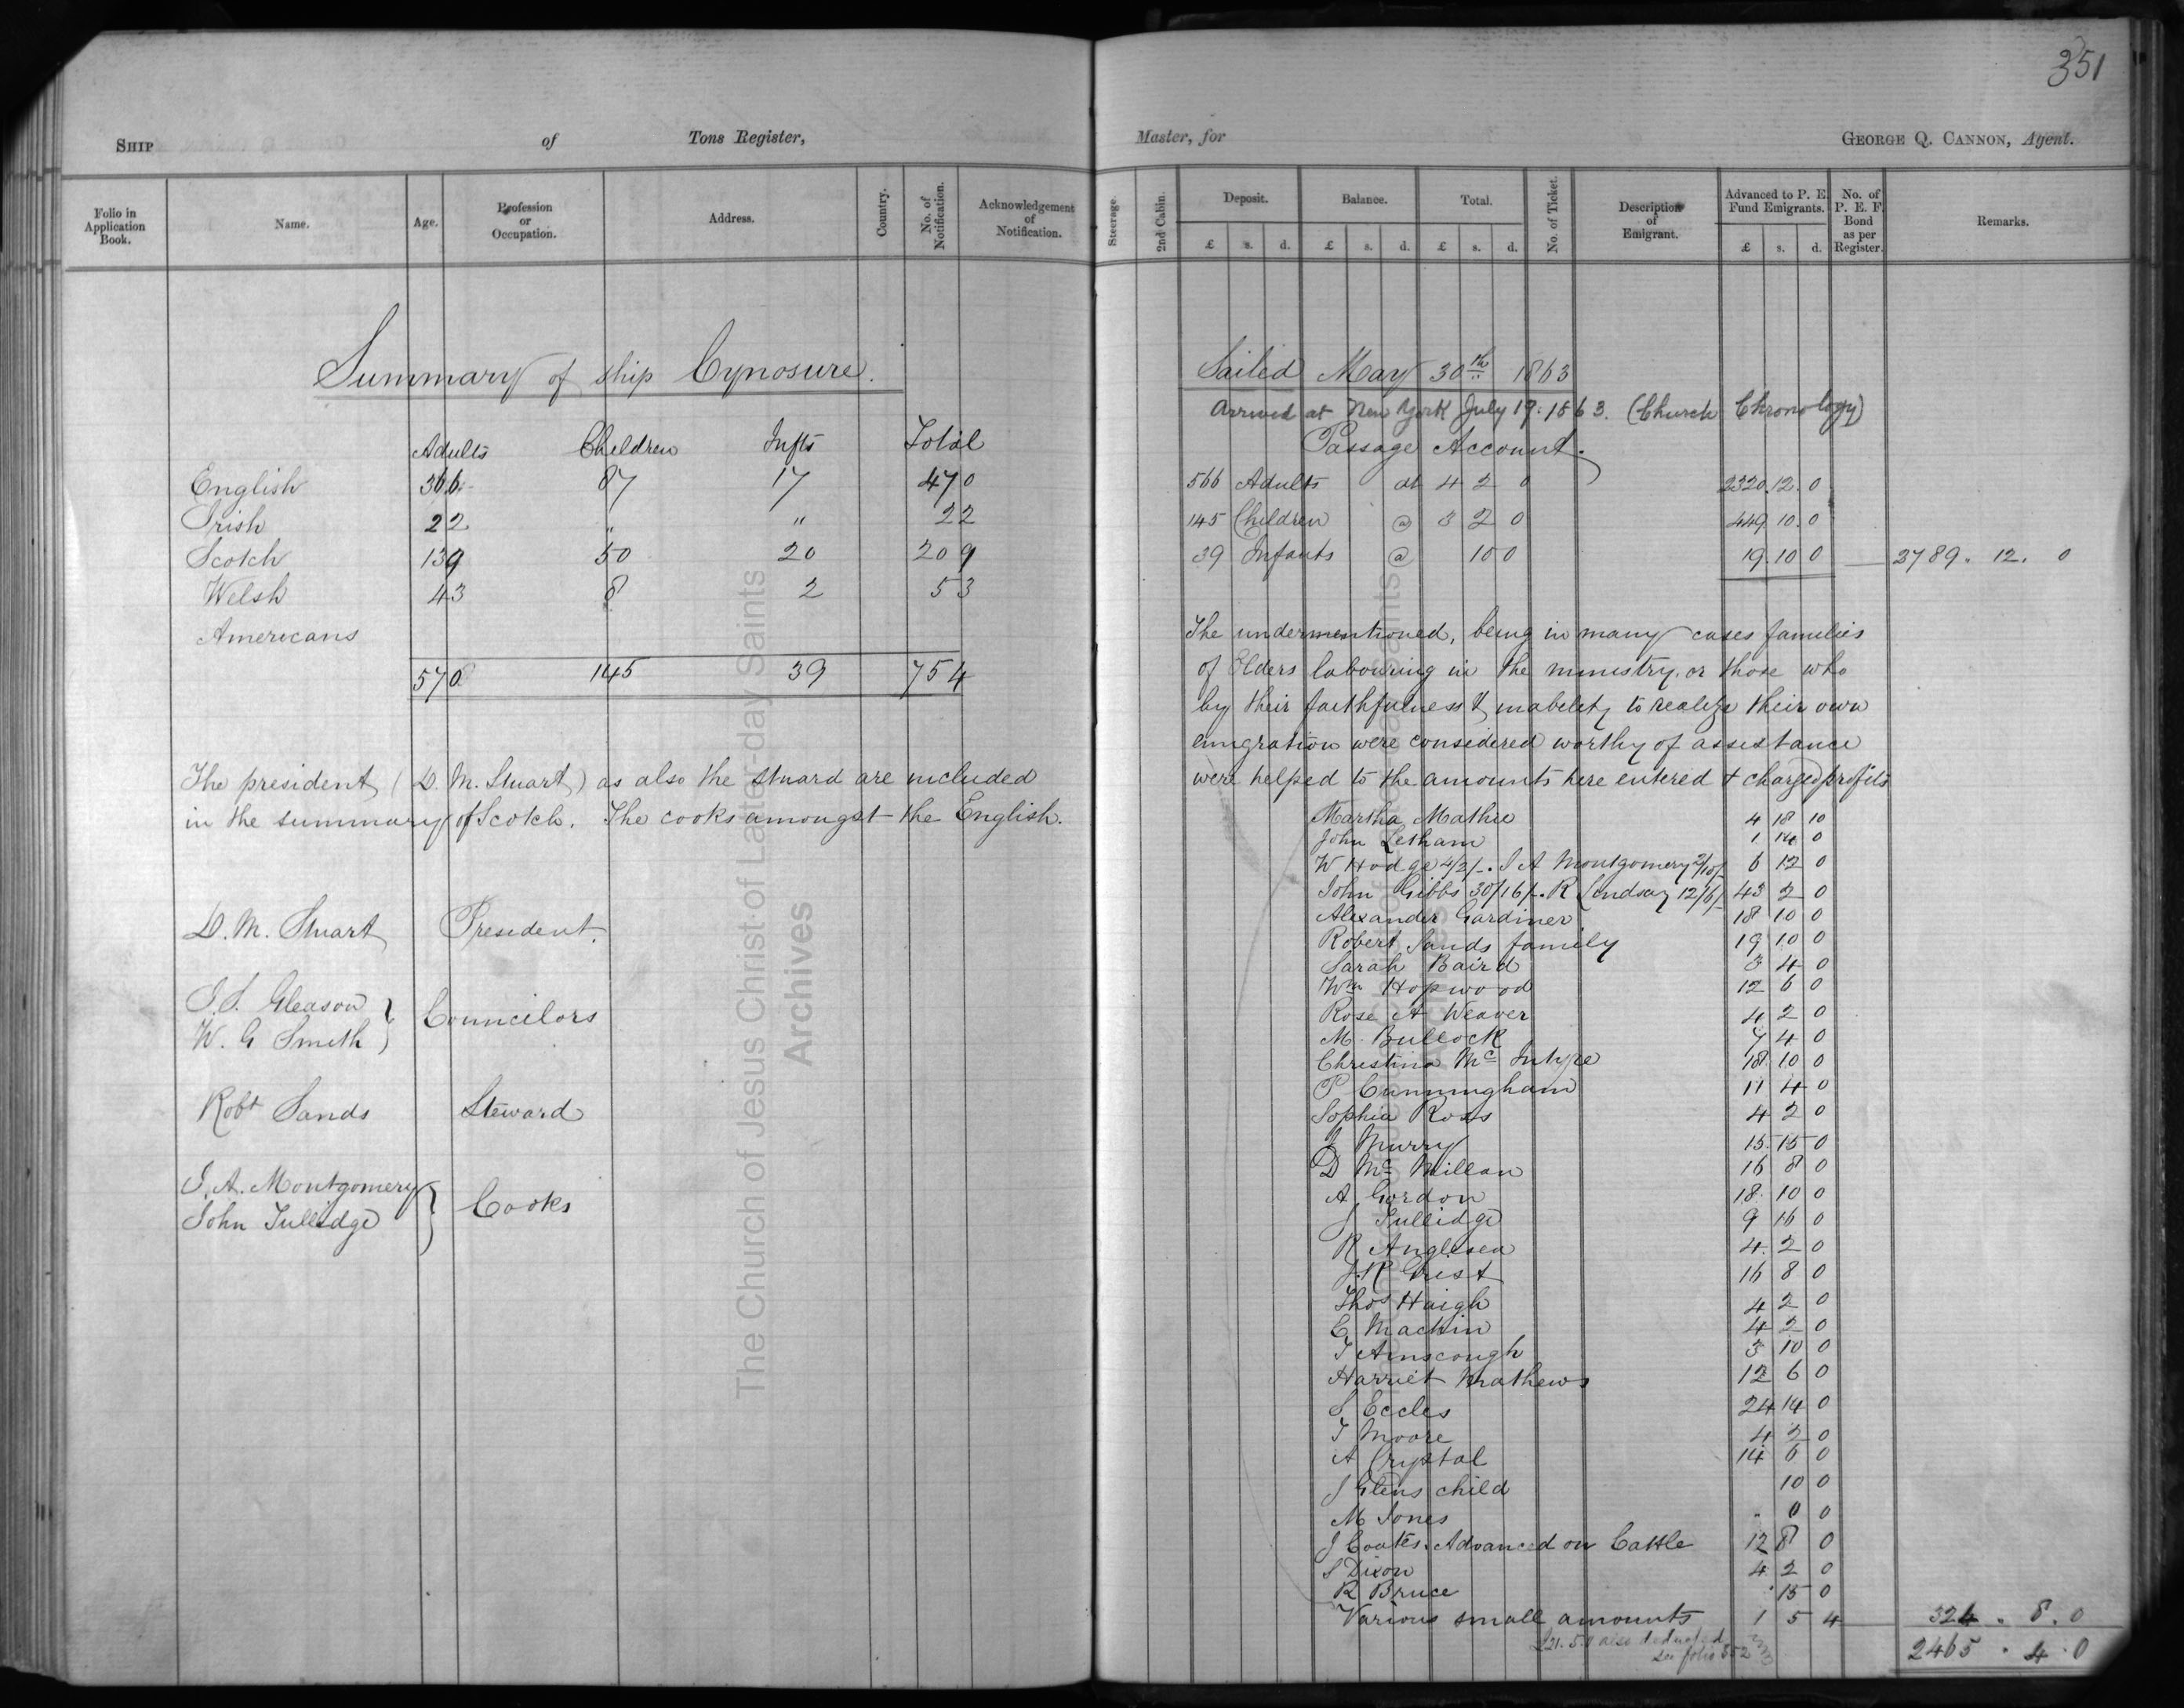 351
SHIP of Tons Register,
Folio in Application Book. Name. Age. Profession or Occupation. Address. Country. No. of Notification. Acknowledgement of Notification.
Summary of ship Cynosure.
Adults Children Infts Total
English 366 87 17 470
Irish 22 " " 22
Scotch 139 50 20 209
Welsh 43 8 2 53
Americans
570 145 39 754
The president (D. M. Stuart) as also the stuard are included
in the summary of Scotch. The cooks amongst the English.
D. M. Stuart President.
J. S. Gleason
W. G Smith } Councilors
Robt Sands Steward
J. A. Montgomery
John Tullidge } Cooks
The Church of Jesus Christ of Latter-day Saints
Archives
Master, for GEORGE Q. CANNON, Agent.
Steerage. 2nd Cabin. Deposit. Balance. Total. No. of Ticket. Description of Emigrant. Advanced to P. E. Fund Emigrants. No. of P. E. F. Bond as per Register. Remarks.
£ s. d. £ s. d. £ s. d. £ s. d.
Sailed May 30th 1863
Arrived at New York July 19. 1863. (Church Chronology)
Passage Account.
566 Adults at 4 2 0 2320.12.0
145 Children @ 3 2 0 449.10.0
39 Infants @ 10 0 19.10 0 2789. 12. 0
The undermentioned, being in many cases families
of Elders labouring in the ministry. or those who
by their faithfulness & inability to realize their own
emigration were considered worthy of assistance
were helped to the amounts here entered & charged profits
Martha Mathie 4 18 10
John Letham 1 14 0
W Hodge 4/2/-. J A Montgomery 2/10/- 6 12 0
John Gibbs 30/16/-. R Lindsay 12/6/- 43 2 0
Alexander Gardiner 18 10 0
Robert Sands family 19 10 0
Sarah Baird 3 4 0
Wm Hopwood 12 6 0
Rose A Weaver 4 2 0
M. Bullock 7 4 0
Christina Mc Intyre 18. 10 0
P Cunningham 11 4 0
Sophia Ross 4 2 0
J Murry 15. 15 0
D Mc Millan 16 8 0
A Gordon 18. 10 0
J Tullidge 9 16 0
R Anglesea 4. 2 0
J. R Grist 16 8 0
Thos Haigh 4 2 0
C Machin 4 2 0
T Ainscough 3 10 0
Harriet Mathews 12 6 0
S Eccles 24 14 0
T Moore 4 2 0
A Crystal 14 6 0
J Glens child 10 0
M Jones 0 0
J Coates. Advanced on Cattle 12 8 0
S Dixon 4. 2 0
R Bruce 15 0
Various small amounts 1 5 4 324. 8. 0
£21. 5. 0 also deducted
see folio 352
2465. 4. 0